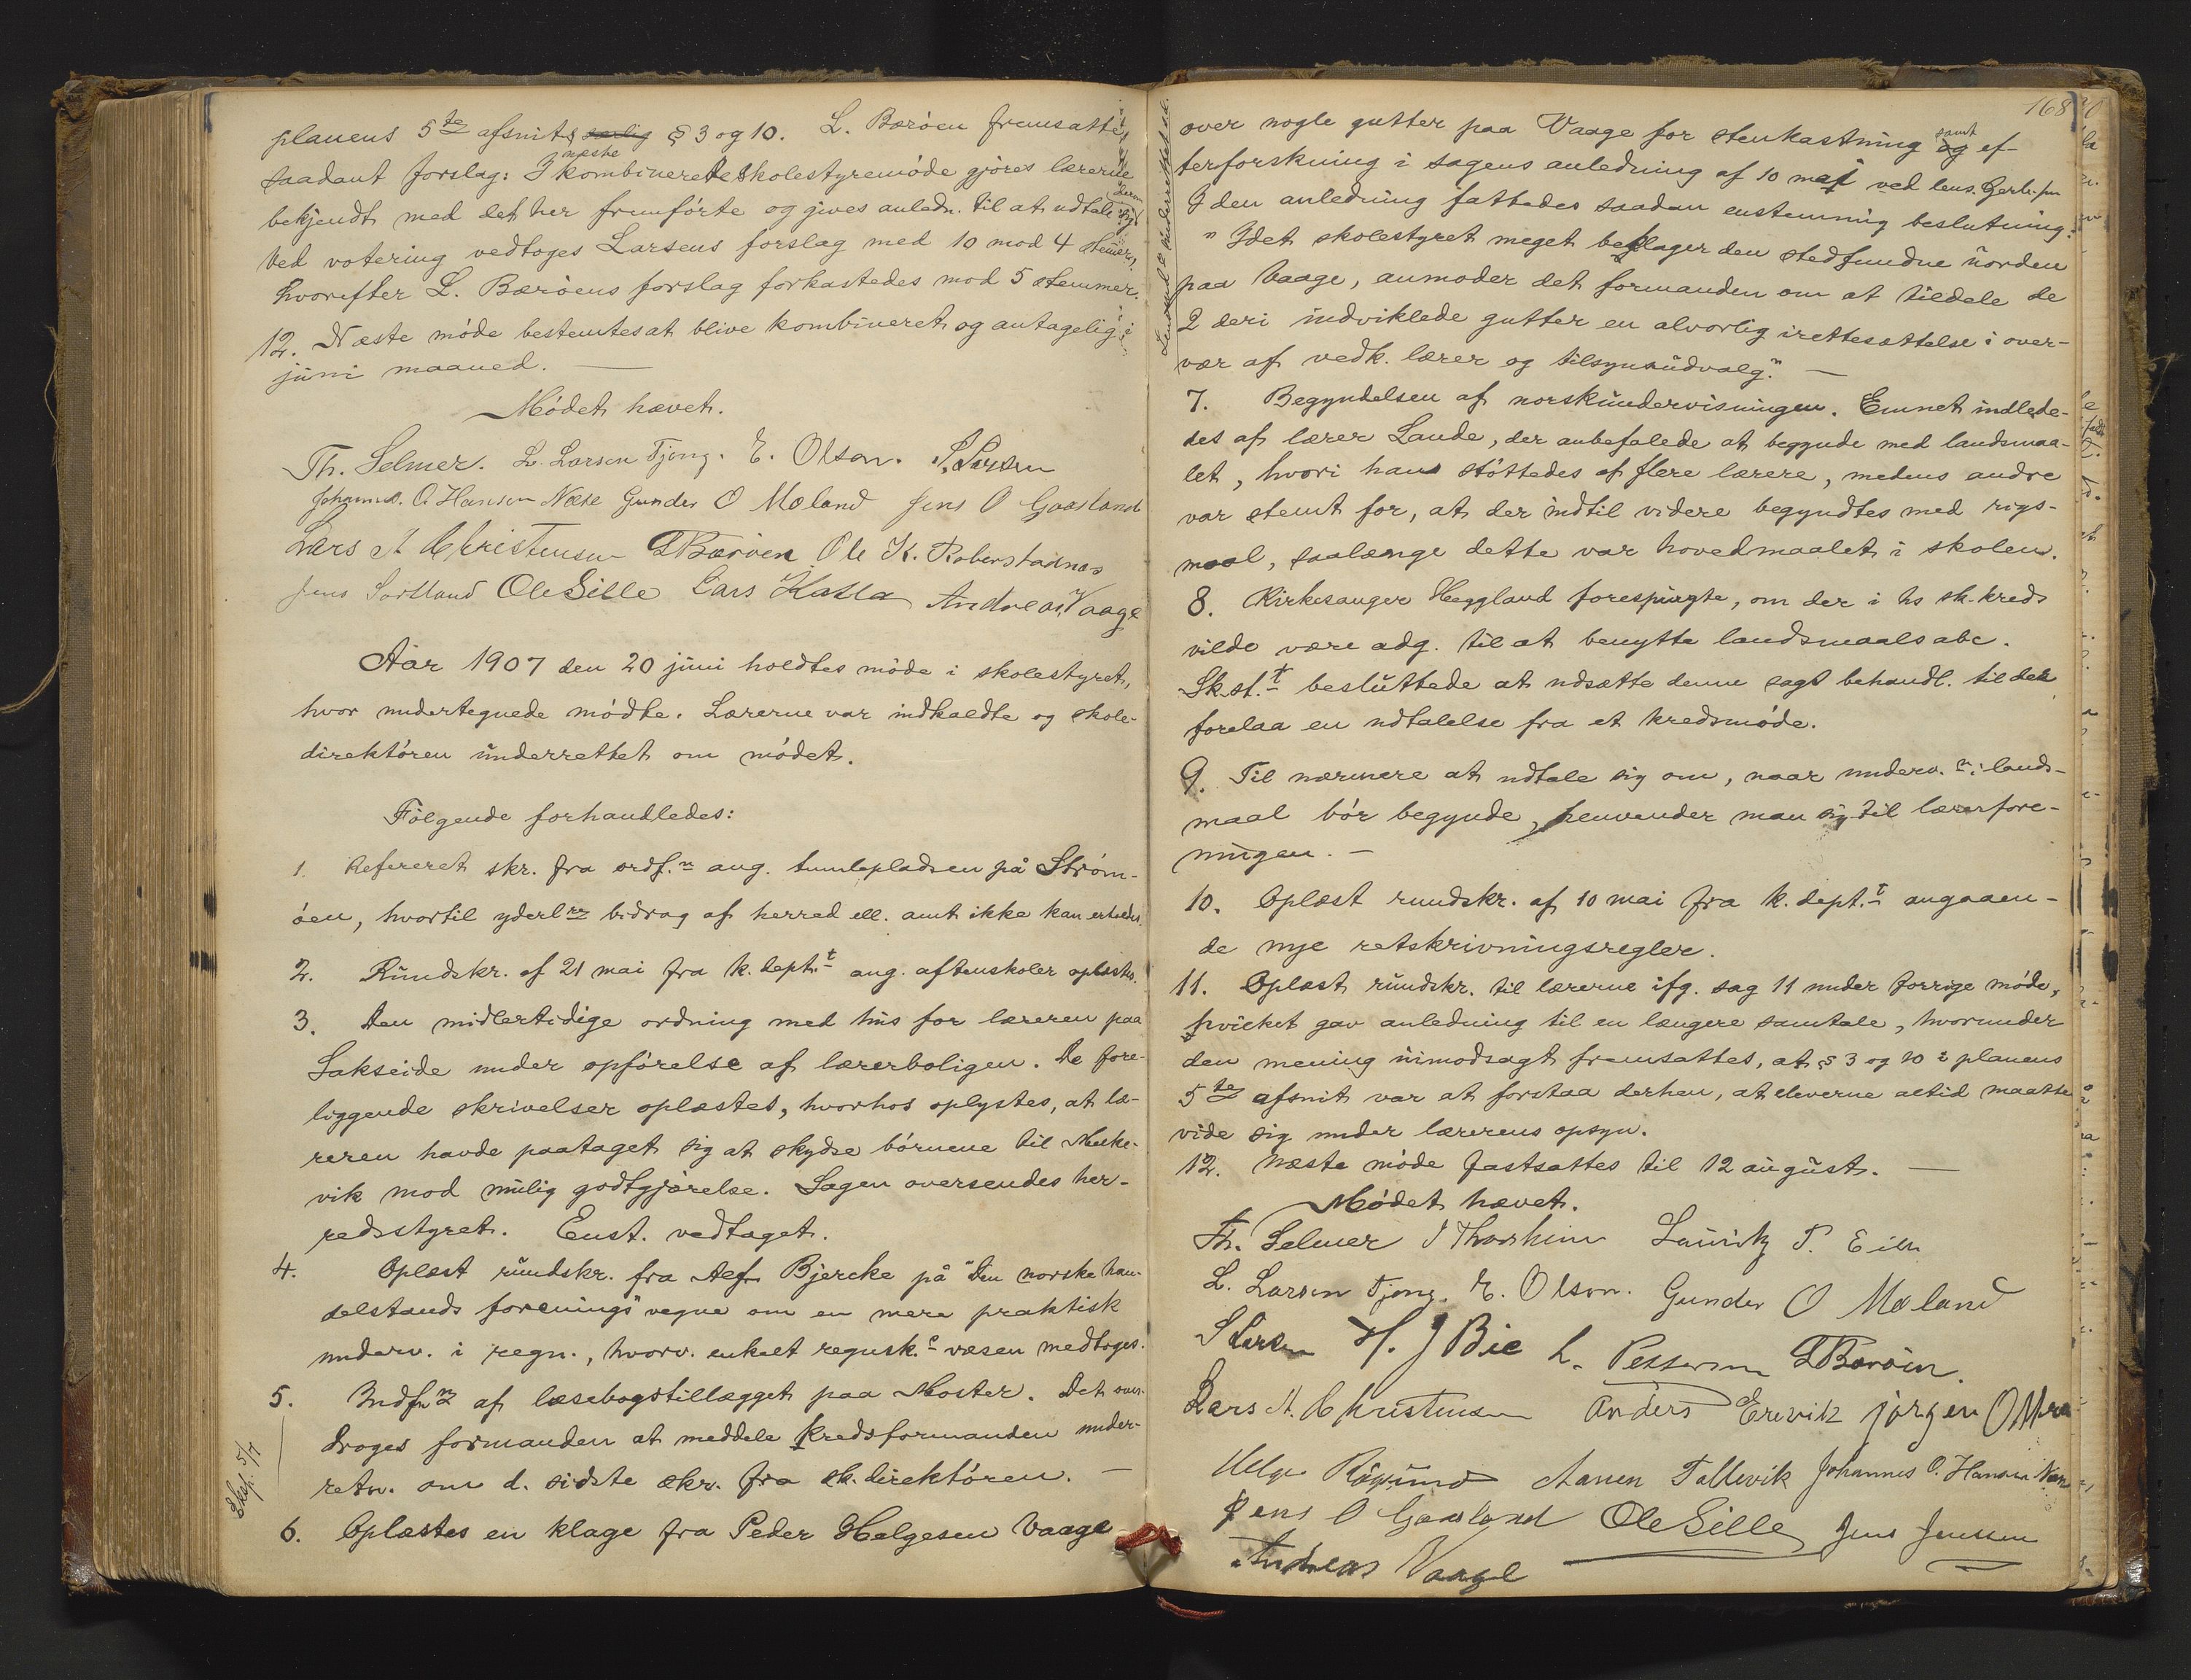 planens 5te afsnits særlig § 3 og 10. L. Bærøen fremsatte
saadant forslag: I næste kombinerede skolestyremøde gjøres lærerne
bekjendt med det her fremførte og gives anledn. til at udtale sig
Ved votering vedtoges Larsens forslag med 10 mod 4 stemmer,
hvorefter L. Bærøens forslag forkastedes mod 5 stemmer.
12. Næste møde bestemtes at blive kombineret og antagelig i
juni maaned. —
Mødet hævet.
Th. Selmer. L. Larsen Tjong. E. Olson. S. Larsen
Johannes. O. Hansen Næse Gunder O Mæland Jens O Gaasland
Lars A Christensen LBærøen Ole K. Roberstadnæs
Jens Sortland Ole Sille Lars Katla Andreas Vaage
Aar 1907 den 20 juni holdtes møde i skolestyret,
hvor undertegnede mødte. Lærerne var indkaldte og skole-
direktøren underrettet om mødet.
Følgende forhandledes:
1. Refereret skr. fra ordf.n ang. tumlepladsen på Strøm-
øen, hvortil yderl.re bidrag af herred ell. amt ikke kan erholdes.
2. Rundskr. af 21 mai fra k. dept.t ang. aftenskoler oplæstes.
3. Den midlertidige ordning med hus for læreren paa
Sakseide under opførelse af lærerboligen. De fore-
liggende skrivelser oplæstes, hvorhos oplystes, at læ-
reren havde paataget sig at skydse børnene til Meke-
vik mod mulig godtgjørelse. Sagen oversendes her-
redsstyret. Enst. vedtaget.
4. Oplæst rundskr. fra Alf Bjercke på "Den norske han-
delstands forenings" vegne om en mere praktisk
underv. i regn., hvorv. enkelt regnsk.s væsen medtoges.
5. Indf.n af læsebogstillægget paa Moster. Det over-
droges formanden at meddele kredsformanden under-
retn. om d. sidste skr. fra sk. direktøren. —
Eksp. 5/7
6. Oplæstes en klage fra Peder Helgesen Vaage
168
over nogle gutter paa Vaage for stenkastning og samt ef-
terforskning i sagens anledning af 10 mai ved lens.
I den anledning fattedes saadan enstemmig beslutning:
"Idet skolestyret meget beklager den stedfundne uorden
paa Vaage, anmoder det formanden om at tildele de
2 deri indviklede gutter en alvorlig irettesættelse i over-
vær af vedk. lærer og tilsynsudvalg." —
7. Begyndelsen af norskundervisningen. Emnet indlede-
des af lærer Lande, der anbefalede at begynde med landsmaa-
let, hvori hans støttedes af flere lærere, medens andre
var stemt for, at der indtil videre begyndtes med rigs-
maal, saalænge dette var hovedmaalet i skolen.
8. Kirkesanger Heggland forespurgte, om der i hs sk. kreds
vilde være adg. til at benytte landsmaals abc.
Sk.st.t besluttede at udsætte denne sags behandl. til der
forelaa en udtalelse fra et kredsmøde.
9. Til nærmere at udtale sig om, naar underv.n i lands-
maal bør begynde, henvender man sig til lærerfore-
ningen. —
10. Oplæst rundskr. af 10 mai fra k. dept.t angaaen-
de nye retskrivningsregler.
11. Oplæst rundskr. til lærerne ifg. sag 11 under forrige møde,
hvilket gav anledning til en længere samtale, hvorunder
den mening uimodsagt fremsattes, at § 3 og 10 i planens
5te afsnit var at forstaa derhen, at eleverne altid maatte
vide sig under lærerens opsyn.
12. Næste møde fastsattes til 12 august. —
Mødet hævet.
Th. Selmer Lauritz P. Eide
L. Larsen Tjong. E. Olson. Gunder O Mæland
S Larsen H. J Bie L. Pettersen LBærøen.
Lars A. Christensen Anders Ervik jørgen O
Helge Røgsund Aanen Tallevik Johannes O. Hansen Næse
Jens O Gaasland Ole Sille Jens Jenssen
Andreas Vaage